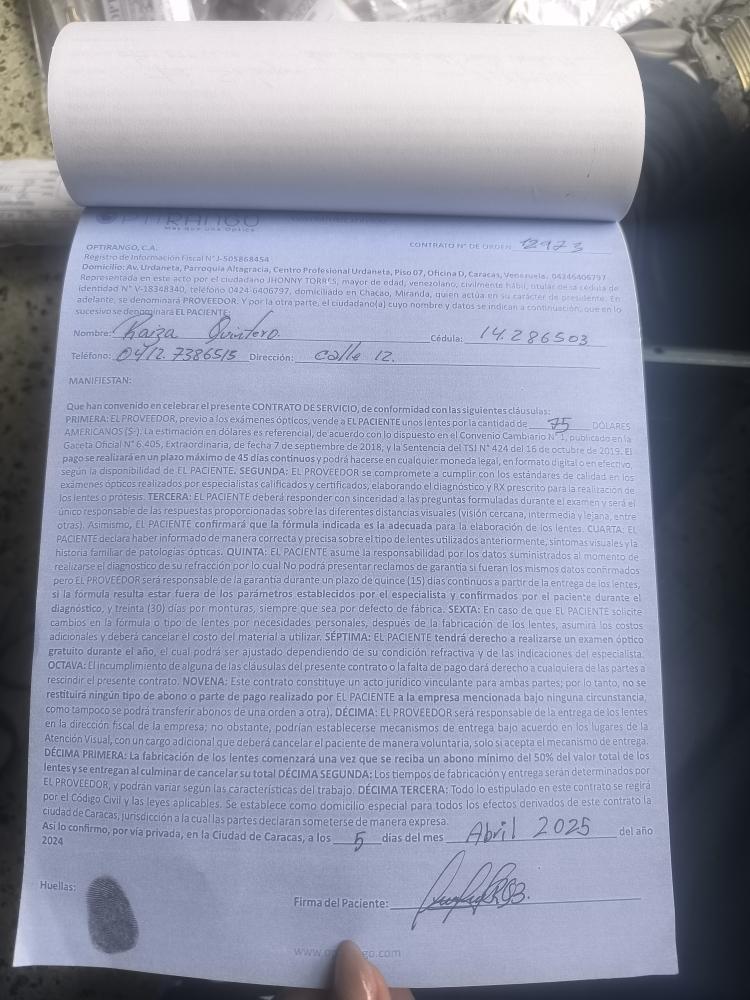 OPTIRANGO
Más que una Óptica
OPTIRANGO, C.A.
CONTRATO N° DE ORDEN 12973
Registro de Información Fiscal N° J-505868454
Domicilio: Av. Urdaneta, Parroquia Altagracia, Centro Profesional Urdaneta, Piso 07, Oficina D, Caracas, Venezuela. 04246406797
Representada en este acto por el ciudadano JHONNY TORRES, mayor de edad, venezolano, civilmente hábil, titular de la cédula de
identidad N° V-18348340, teléfono 0424-6406797, domiciliado en Chacao, Miranda, quien actúa en su carácter de presidente. En
adelante, se denominará PROVEEDOR. Y por la otra parte, el ciudadano(a) cuyo nombre y datos se indican a continuación, que en lo
sucesivo se denominará EL PACIENTE:
Nombre: Raiza Quintero. Cédula: 14.286503
Teléfono: 0412.7386515 Dirección: Calle 12.
MANIFIESTAN:
Que han convenido en celebrar el presente CONTRATO DE SERVICIO, de conformidad con las siguientes cláusulas:
PRIMERA: EL PROVEEDOR, previo a los exámenes ópticos, vende a EL PACIENTE unos lentes por la cantidad de 75 DÓLARES
AMERICANOS ($-). La estimación en dólares es referencial, de acuerdo con lo dispuesto en el Convenio Cambiario N° 1, publicado en la
Gaceta Oficial N° 6.405, Extraordinaria, de fecha 7 de septiembre de 2018, y la Sentencia del TSJ N° 424 del 16 de octubre de 2019. El
pago se realizará en un plazo máximo de 45 días continuos y podrá hacerse en cualquier moneda legal, en formato digital o en efectivo,
según la disponibilidad de EL PACIENTE. SEGUNDA: EL PROVEEDOR se compromete a cumplir con los estándares de calidad en los
exámenes ópticos realizados por especialistas calificados y certificados, elaborando el diagnóstico y RX prescrito para la realización de
los lentes o prótesis. TERCERA: EL PACIENTE deberá responder con sinceridad a las preguntas formuladas durante el examen y será el
único responsable de las respuestas proporcionadas sobre las diferentes distancias visuales (visión cercana, intermedia y lejana, entre
otras). Asimismo, EL PACIENTE confirmará que la fórmula indicada es la adecuada para la elaboración de los lentes. CUARTA: EL
PACIENTE declara haber informado de manera correcta y precisa sobre el tipo de lentes utilizados anteriormente, síntomas visuales y la
historia familiar de patologías ópticas. QUINTA: EL PACIENTE asume la responsabilidad por los datos suministrados al momento de
realizarse el diagnostico de su refracción por lo cual No podrá presentar reclamos de garantía si fueran los mismos datos confirmados
pero EL PROVEEDOR será responsable de la garantía durante un plazo de quince (15) días continuos a partir de la entrega de los lentes,
si la fórmula resulta estar fuera de los parámetros establecidos por el especialista y confirmados por el paciente durante el
diagnóstico, y treinta (30) días por monturas, siempre que sea por defecto de fábrica. SEXTA: En caso de que EL PACIENTE solicite
cambios en la fórmula o tipo de lentes por necesidades personales, después de la fabricación de los lentes, asumirá los costos
adicionales y deberá cancelar el costo del material a utilizar. SÉPTIMA: EL PACIENTE tendrá derecho a realizarse un examen óptico
gratuito durante el año, el cual podrá ser ajustado dependiendo de su condición refractiva y de las indicaciones del especialista.
OCTAVA: El incumplimiento de alguna de las cláusulas del presente contrato o la falta de pago dará derecho a cualquiera de las partes a
rescindir el presente contrato. NOVENA: Este contrato constituye un acto jurídico vinculante para ambas partes; por lo tanto, no se
restituirá ningún tipo de abono o parte de pago realizado por EL PACIENTE a la empresa mencionada bajo ninguna circunstancia,
como tampoco se podrá transferir abonos de una orden a otra). DÉCIMA: EL PROVEEDOR será responsable de la entrega de los lentes
en la dirección fiscal de la empresa; no obstante, podrían establecerse mecanismos de entrega bajo acuerdo en los lugares de la
Atención Visual, con un cargo adicional que deberá cancelar el paciente de manera voluntaria, solo si acepta el mecanismo de entrega.
DÉCIMA PRIMERA: La fabricación de los lentes comenzará una vez que se reciba un abono mínimo del 50% del valor total de los
lentes y se entregan al culminar de cancelar su total DÉCIMA SEGUNDA: Los tiempos de fabricación y entrega serán determinados por
EL PROVEEDOR, y podrán variar según las características del trabajo. DÉCIMA TERCERA: Todo lo estipulado en este contrato se regirá
por el Código Civil y las leyes aplicables. Se establece como domicilio especial para todos los efectos derivados de este contrato la
ciudad de Caracas, jurisdicción a la cual las partes declaran someterse de manera expresa.
Así lo confirmo, por vía privada, en la Ciudad de Caracas, a los 5 días del mes Abril 2025 del año
2024
Huellas:
Firma del Paciente: